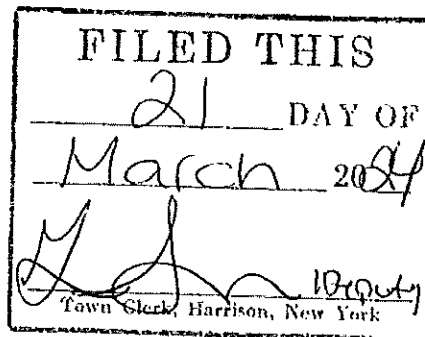 FILED THIS
21 DAY OF
March 2024
Deputy
Town Clerk, Harrison, New York